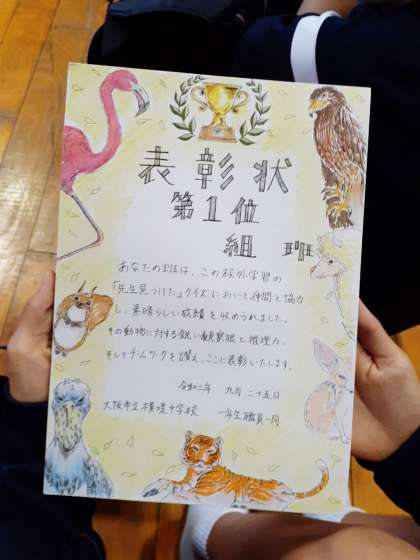 表彰状
第1位
組 班
あなたの班は、この校外学習の
「先生見つけた」クイズにおいて仲間と協力
し、素晴らしい成績を収められました。
その動物に対する鋭い観察眼と推理力、
そしてチームワークを讃え、ここに表彰いたします。
令和二年 九月 二十五日
大阪市立横堤中学校 一年生職員一同